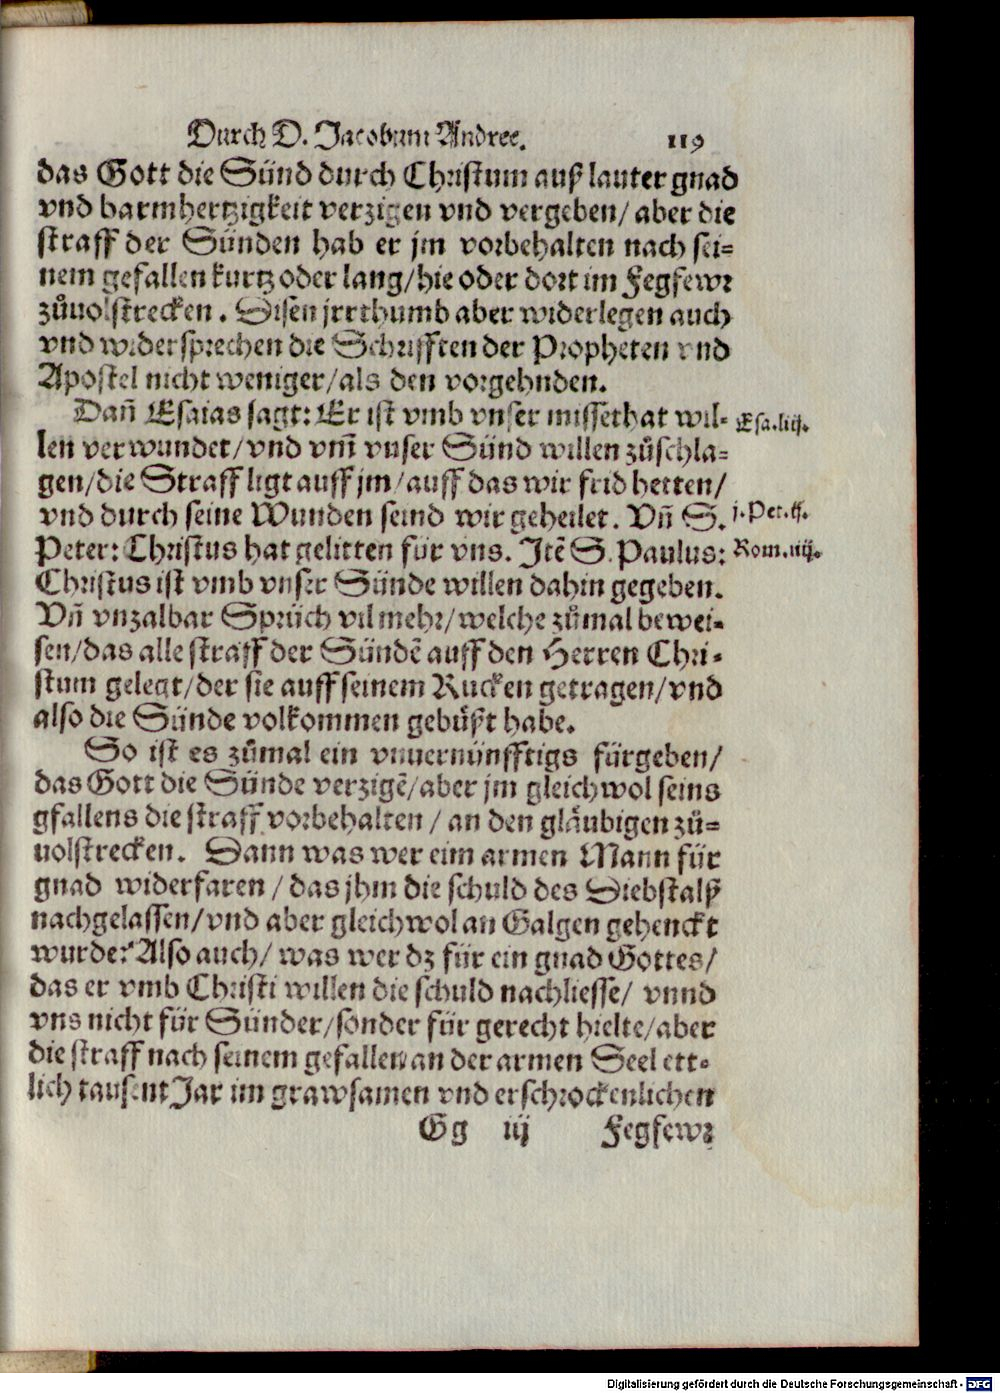 Durch D. Jacobum Andree. 119
das Gott die Sünd durch Christum auß lauter gnad
vnd barmhertzigkeit verzigen vnd vergeben/ aber die
straff der Sünden hab er jm vorbehalten nach sei=
nem gefallen kurtz oder lang/hie oder dort im Fegfewr
zůuolstrecken. Disen jrrthumb aber widerlegen auch
vnd widersprechen die Schrifften der Propheten vnd
Apostel nicht weniger/als den vorgehnden.
Dañ Esaias sagt: Er ist vmb vnser missethat wil= Esa.liij.
len verwundet/vnd vm̃ vnser Sünd willen zůschla=
gen/die Straff ligt auff jm/auff das wir frid hetten/
vnd durch seine Wunden seind wir geheilet. Vñ S. j.Pet.ij.
Peter: Christus hat gelitten für vns. Itẽ S. Paulus: Rom.iiij.
Christus ist vmb vnser Sünde willen dahin gegeben.
Vñ vnzalbar Sprüch vil mehr/welche zůmal bewei=
sen/das alle straff der Sündẽ auff den Herren Chri=
stum gelegt/der sie auff seinem Rucken getragen/vnd
also die Sünde volkommen gebüßt habe.
So ist es zůmal ein vnuernünfftigs fürgeben/
das Gott die Sünde verzigẽ/aber jm gleichwol seins
gfallens die straff vorbehalten/ an den gläubigen zů=
uolstrecken. Dann was wer eim armen Mann für
gnad widerfaren/das jhm die schuld des Diebstalß
nachgelassen/vnd aber gleichwol an Galgen gehenckt
wurde? Also auch/ was wer dz für ein gnad Gottes/
das er vmb Christi willen die schuld nachliesse/ vnnd
vns nicht für Sünder/sonder für gerecht hielte/aber
die straff nach seinem gefallen an der armen Seel ett=
lich tausent Jar im grawsamen vnd erschrockenlichen
Gg iij Fegfewr
Digitalisierung gefördert durch die Deutsche Forschungsgemeinschaft - DFG